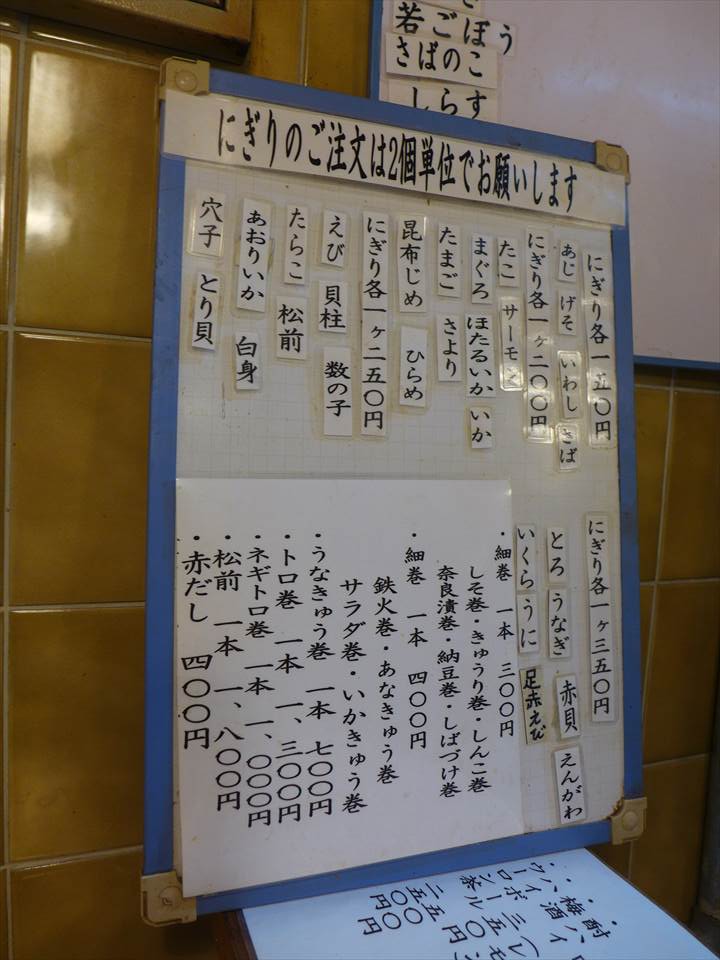 若ごぼう
さばのこ
しらす
にぎりのご注文は2個単位でお願いします
にぎり各一ヶ一五〇円
あじ げそ いわし さば
にぎり各一ヶ二〇〇円
たこ サーモン
まぐろ ほたるいか いか
たまご さより
昆布じめ ひらめ
にぎり各一ヶ二五〇円
えび 貝柱 数の子
たらこ 松前
あおりいか 白身
穴子 とり貝
にぎり各一ヶ三五〇円
とろ うなぎ 赤貝 えんがわ
いくら うに 足赤えび
・細巻 一本 三〇〇円
しそ巻・きゅうり巻・しんこ巻
奈良漬巻・納豆巻・しばづけ巻
・細巻 一本 四〇〇円
鉄火巻・あなきゅう巻
サラダ巻・いかきゅう巻
・うなきゅう巻 一本 七〇〇円
・トロ巻 一本 一、三〇〇円
・ネギトロ巻 一本 一、〇〇〇円
・松前 一本 一、八〇〇円
・赤だし 四〇〇円
・酎ハイ
・梅酒
・ハイボール 三五〇円
・ウーロン茶 二五〇円